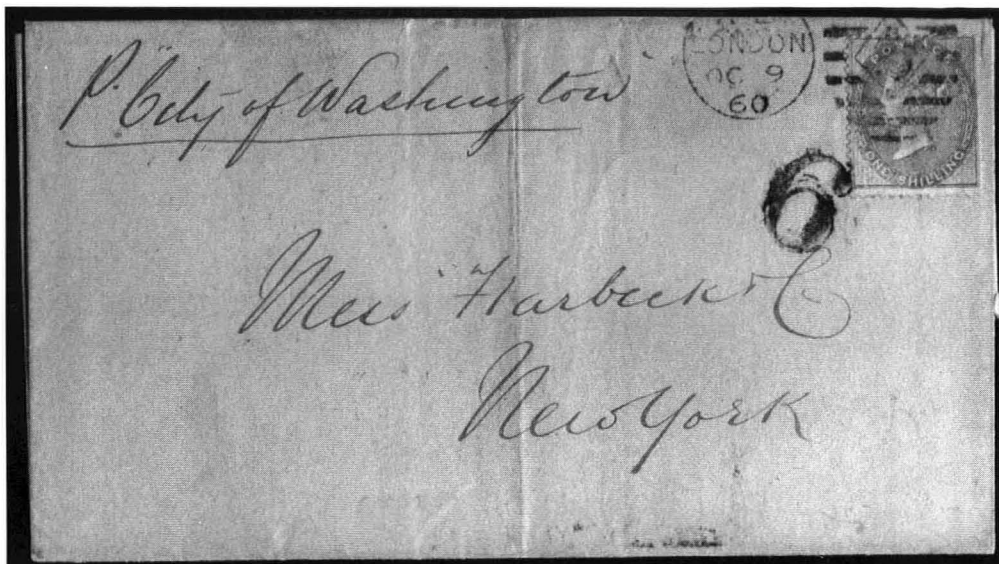 P. "City of Washington
LONDON
OC 9
60
POSTAGE
ONE SHILLING
6
Mess Harbeck & C
New York